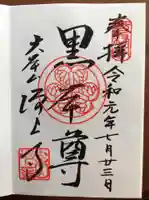 奉拝
令和元年七月廿三日
黒本尊
大本山増上寺